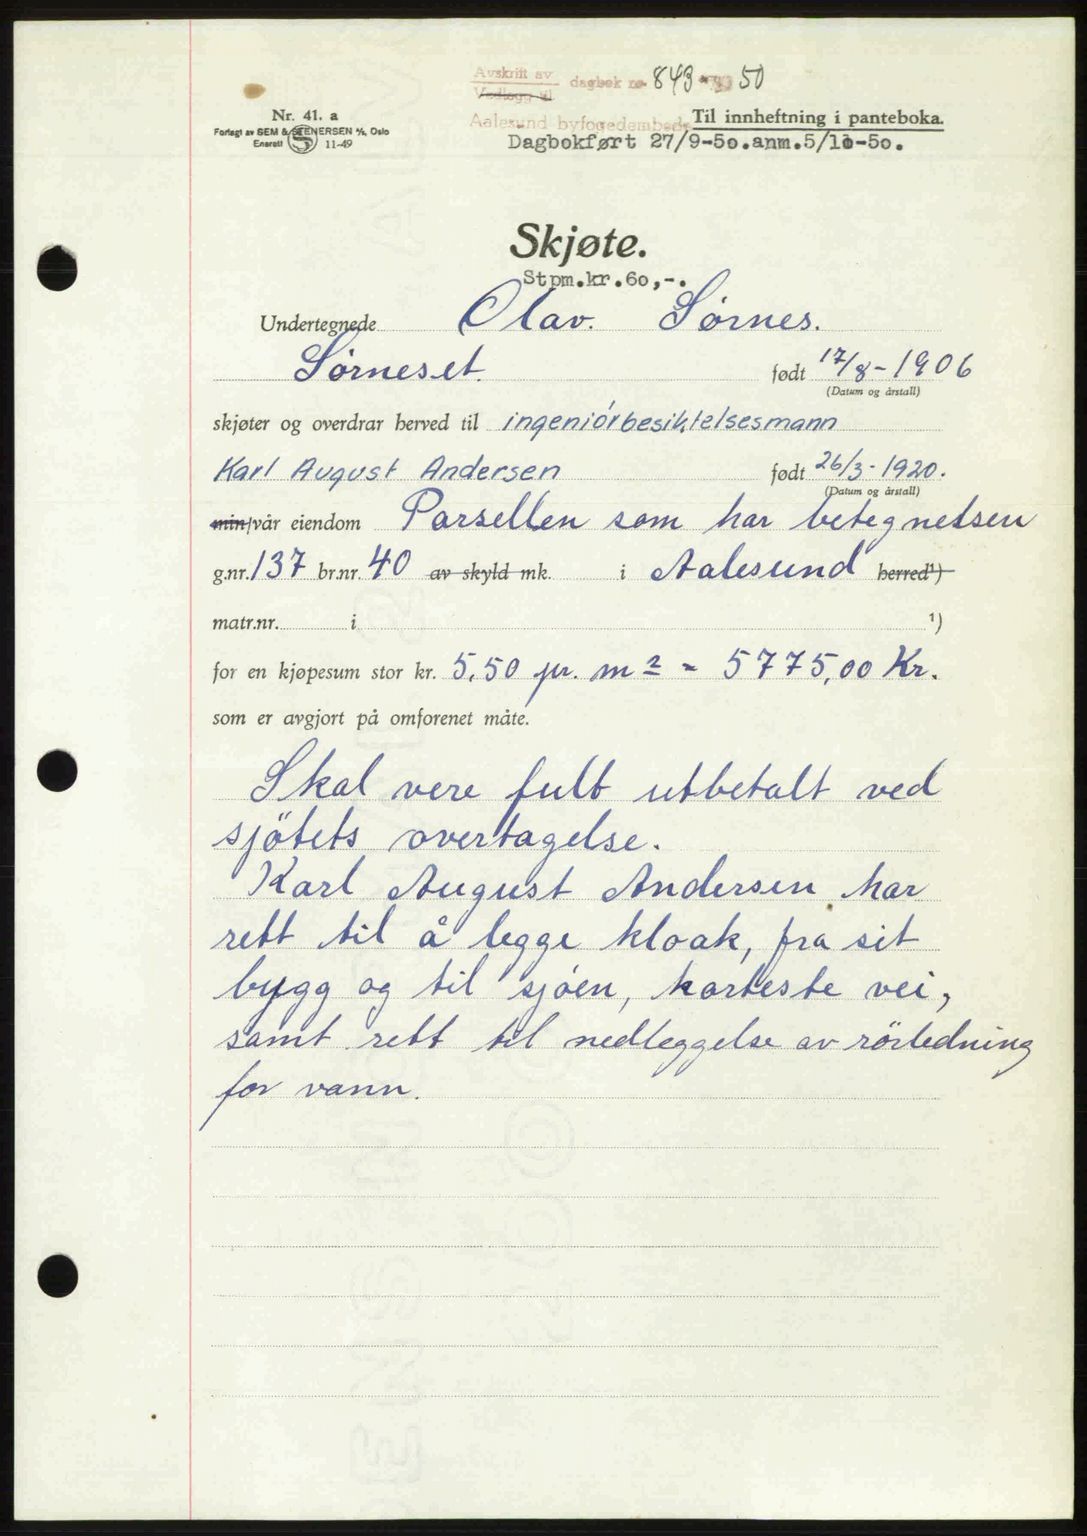 Avskrift av
Vedlegg til
dagbok nr. 843 50
Aalesund byfogedembede
Nr. 41. a
Forlagt av SEM & STENERSEN A/S, Oslo
Enerett S 11-49
Til innheftning i panteboka.
Dagbokført 27/9-50.anm.5/10-50.
Skjøte.
Stpm.kr.60,-.
Undertegnede Olav. Sørnes.
Sørneset. født 17/8 - 1906
(Datum og årstall)
skjøter og overdrar herved til ingeniörbesiktelsesmann
Karl August Andersen født 26/3 - 1920.
(Datum og årstall)
min/vår eiendom Parsellen som har betegnelsen
g.nr. 137 br.nr. 40 av skyld mk. i Aalesund herred¹)
matr.nr. i ¹)
for en kjøpesum stor kr. 5,50 pr. m² = 5775,00 Kr.
som er avgjort på omforenet måte.
Skal vere fult utbetalt ved
sjötets overtagelse.
Karl August Andersen har
rett til å legge kloak, fra sit
bygg og til sjöen, korteste vei,
samt rett til nedleggelse av rörledning
for vann.